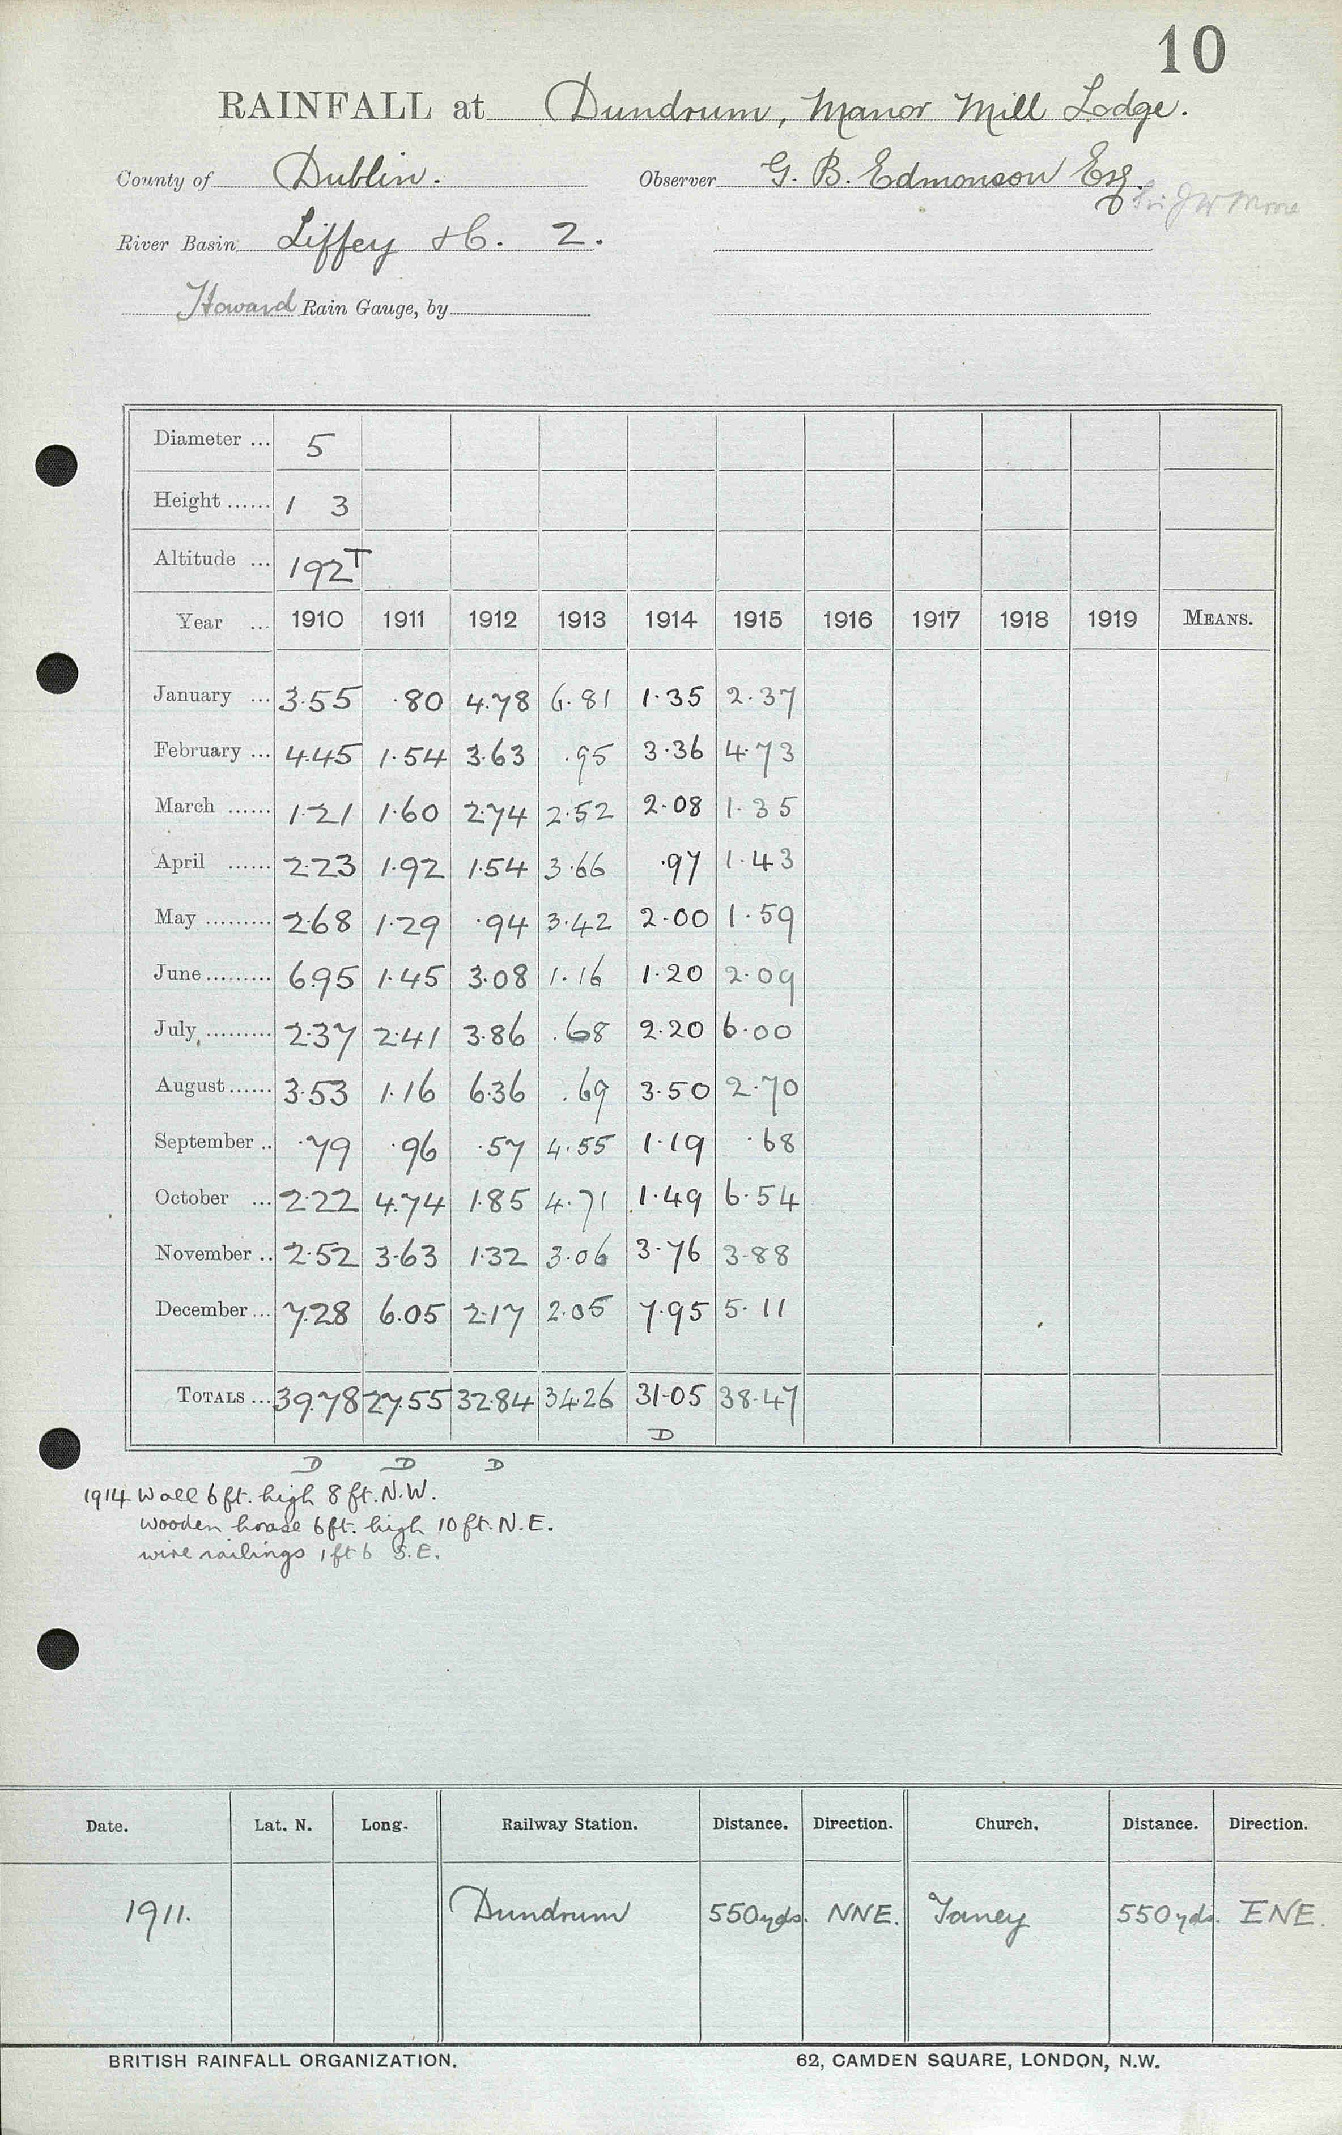 10
RAINFALL at Dundrum, Manor Mill Lodge.
County of Dublin. Observer G. B. Edmonson Esq.
J W Moore
River Basin Liffey &c. 2.
Howard Rain Gauge, by
Diameter ... 5
Height ...... 1 3
Altitude ... 192T
Year ... 1910 1911 1912 1913 1914 1915 1916 1917 1918 1919 MEANS.
January ... 3.55 .80 4.78 6.81 1.35 2.37
February ... 4.45 1.54 3.63 .95 3.36 4.73
March ...... 1.21 1.60 2.74 2.52 2.08 1.35
April ...... 2.23 1.92 1.54 3.66 .97 1.43
May ......... 2.68 1.29 .94 3.42 2.00 1.59
June ......... 6.95 1.45 3.08 1.16 1.20 2.09
July ......... 2.37 2.41 3.86 .68 2.20 6.00
August ...... 3.53 1.16 6.36 .69 3.50 2.70
September .. .79 .96 .57 4.55 1.19 .68
October ... 2.22 4.74 1.85 4.71 1.49 6.54
November .. 2.52 3.63 1.32 3.06 3.76 3.88
December ... 7.28 6.05 2.17 2.05 7.95 5.11
TOTALS ... 39.78 27.55 32.84 34.26 31.05 38.47
D
D D D
1914 Wall 6 ft. high 8 ft. N.W.
wooden house 6 ft. high 10 ft. N.E.
wire railings 1 ft 6 S.E.
Date. Lat. N. Long. Railway Station. Distance. Direction. Church. Distance. Direction.
1911. Dundrum 550 yds. NNE. Taney 550 yds. ENE.
BRITISH RAINFALL ORGANIZATION. 62, CAMDEN SQUARE, LONDON, N.W.